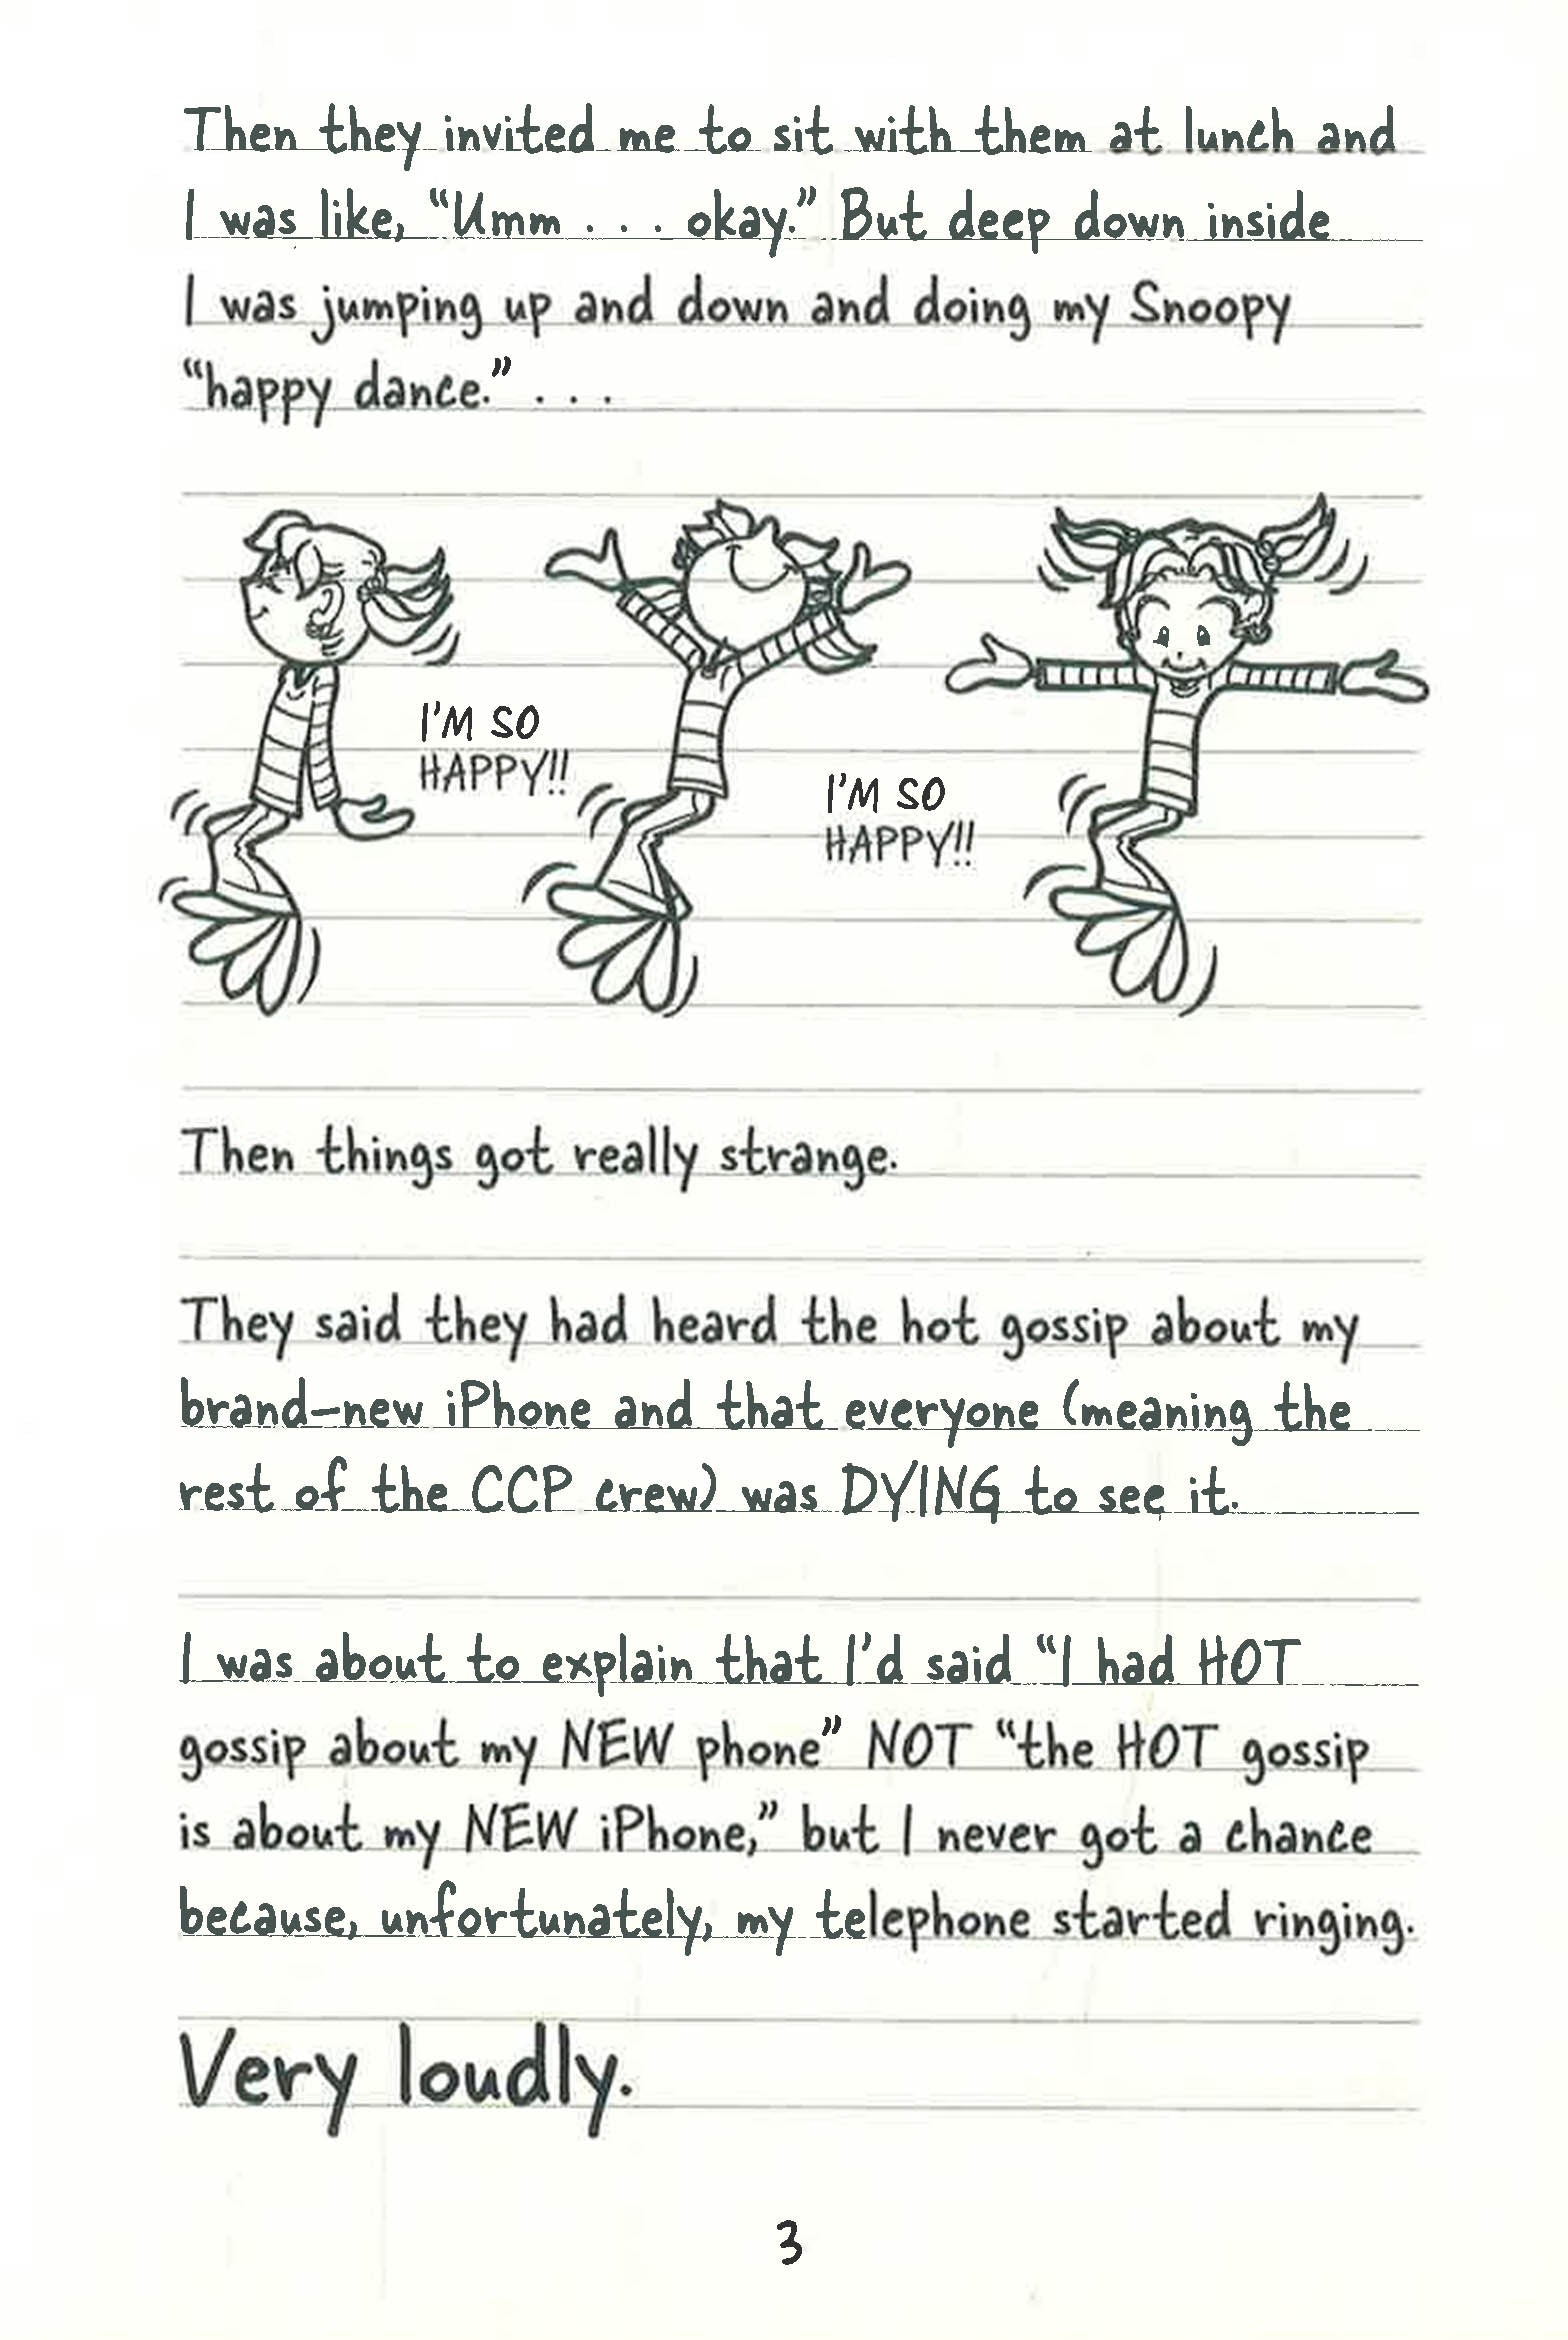 Then they invited me to sit with them at lunch and
I was like, “Umm . . . okay.” But deep down inside
I was jumping up and down and doing my Snoopy
“happy dance.” . . .
I'M SO
HAPPY!!
I'M SO
HAPPY!!
Then things got really strange.
They said they had heard the hot gossip about my
brand-new iPhone and that everyone (meaning the
rest of the CCP crew) was DYING to see it.
I was about to explain that I'd said “I had HOT
gossip about my NEW phone” NOT “the HOT gossip
is about my NEW iPhone,” but I never got a chance
because, unfortunately, my telephone started ringing.
Very loudly.
3